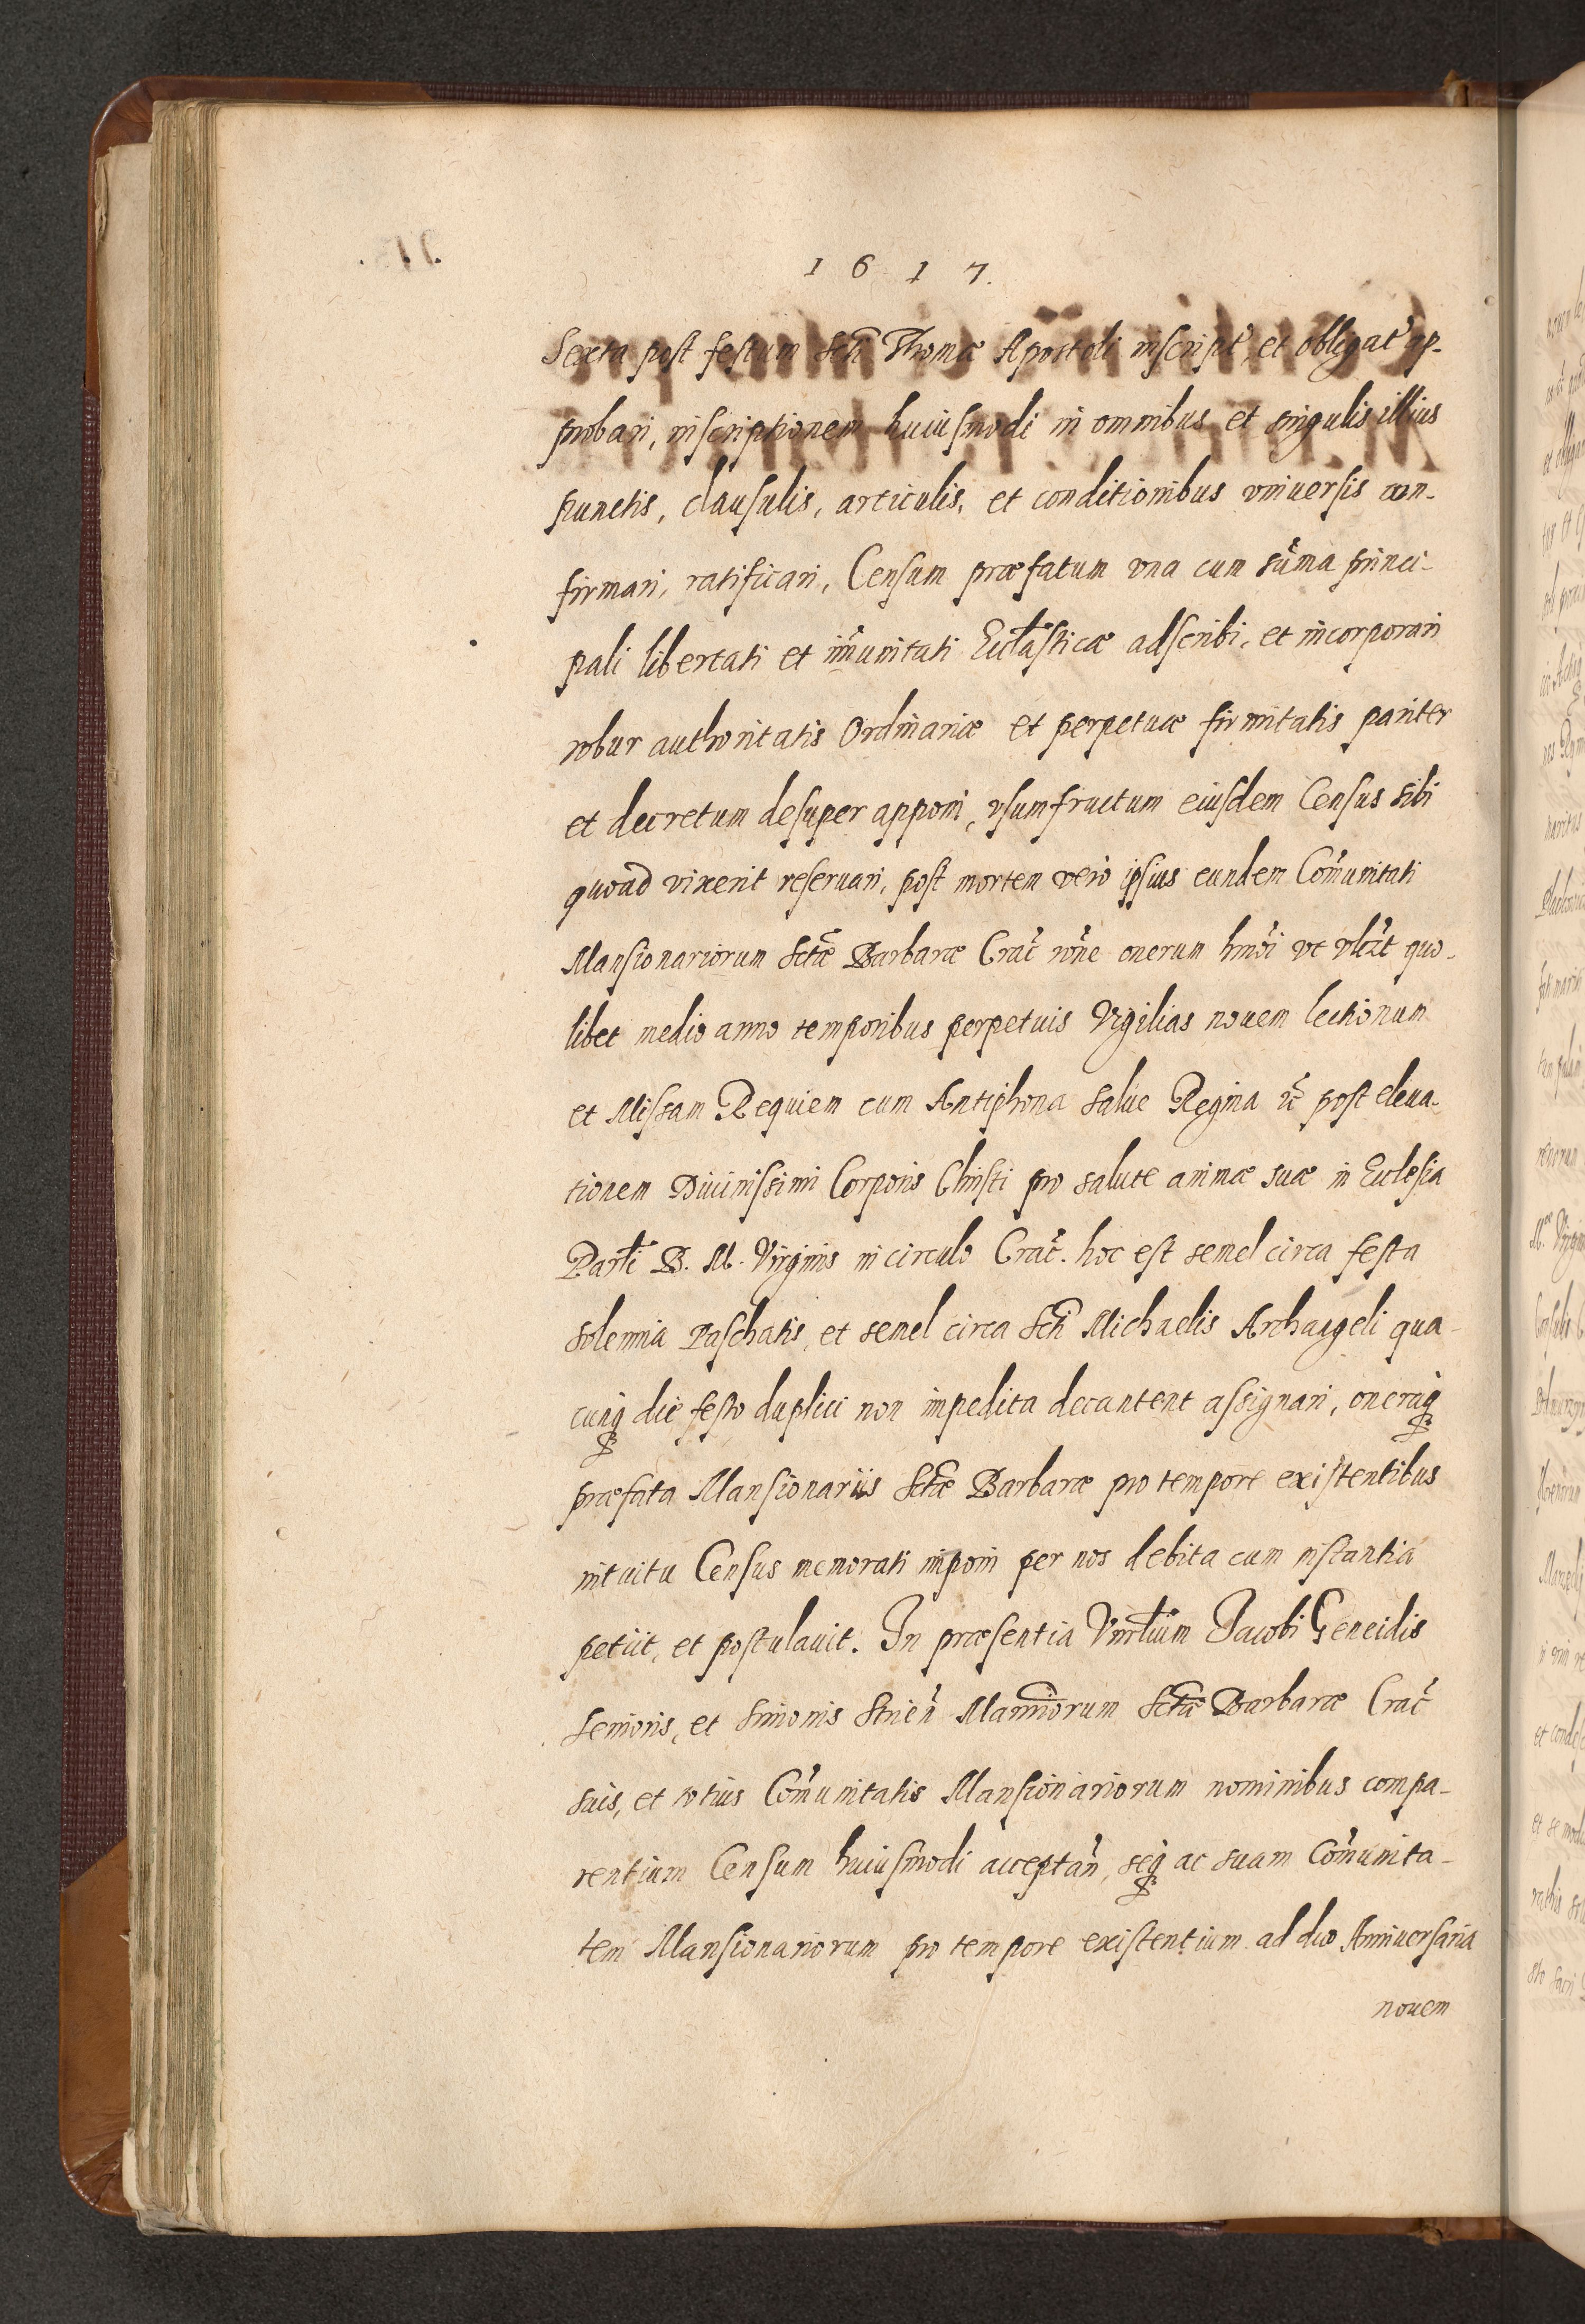 1 6 1 7.
Sexta post festum Scti Thomæ Apostoli inscript, et obligat ap-
probari, inscriptionem huiusmodi in omnibus et singulis illius
punctis, clausulis, articulis, et conditionibus vniuersis con-
firmari, ratificari, Censum præfatum vna cum sũma princi-
pali libertati et im̃unitati Ecclãsticæ adscribi, et incorporari
robur authoritatis Ordinariæ et perpetuæ firmitatis pariter
et decretum desuper apponi, vsumfructum eiusdem Census sibi
quoad vixerit reseruari, post mortem vero ipsius eundem Com̃unitati
Mansionariorum Sctæ Barbaræ Crac̃ rõne onerum hmõi vt vlt̃ quo-
libet medio anno temporibus perpetuis Vigilias nouem lectionum
et Missam Requiem cum Antiphona Salue Regina &c̃ post eleua-
tionem Diuinissimi Corporis Christi pro salute animæ suæ in Ecclesia
Parlĩ B. M. Virginis in circulo Crac̃. hoc est semel circa festa
solemnia Paschatis, et semel circa Scti Michaelis Archangeli qua-
cunq die festo duplici non impedita decantent assignari, oneraq
præfata Mansionariis Sctæ Barbaræ pro tempore existentibus
intuitu Census memorati imponi per nos debita cum instantia
petiit, et postulauit. In præsentia Vnrlium Jacobi Geneidis
Senioris, et Simonis Strien̄ Mannĩorum Sctæ Barbaræ Crac̃
suis, et totius Com̃unitatis Mansionariorum nominibus compa-
rentium Censum huiusmodi acceptañ, seq ac suam Com̃unita-
tem Mansionariorum pro tempore existentium ad duo Anniuersaria
nouem